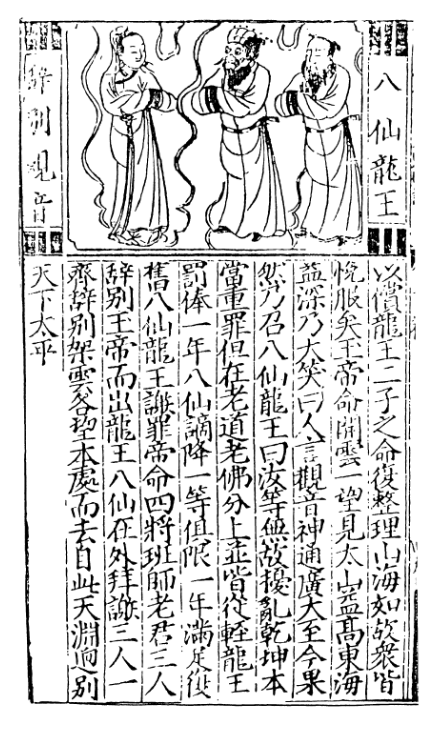 八仙龍王
辞別観音
以償龍王二子之命復整理山海如故衆皆
悅服矣玉帝命開雲一望見太山益高東海
益深乃大笑曰人言觀音神通廣大至今果
然乃召八仙龍王曰汝等無故擾亂乾坤本
當重罪但在老道老佛分上並皆從輕龍王
罰俸一年八仙謫降一等但限一年滿足復
舊八仙龍王謝罪帝命四將班師老君三人
辞別玉帝而出龍王八仙在外拜謝三人一
齊辞別架雲各望本處而去自此天淵迥別
天下太平